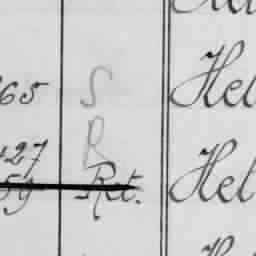 65 S Hel
427 R
59 Ret. Hel